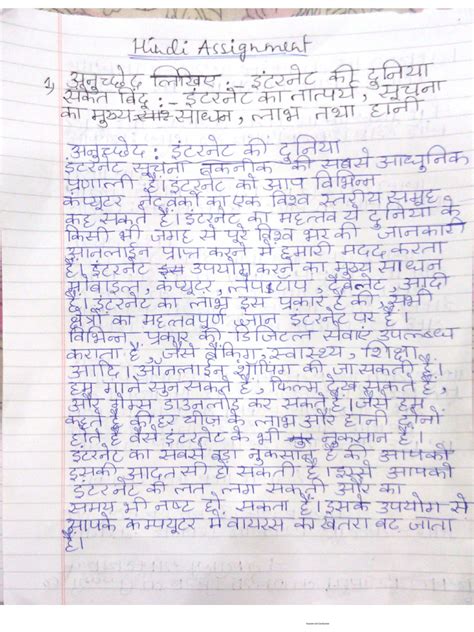 Hindi Assignment
1) अनुच्छेद लिखिए :- इंटरनेट की दुनिया
संकेत बिंदु :- इंटरनेट का तात्पर्य, सूचना
का मुख्य साधन, लाभ तथा हानी
अनुच्छेद : इंटरनेट की दुनिया
इंटरनेट सूचना तकनीक की सबसे आधुनिक
प्रणाली है। इंटरनेट को आप विभिन्न
कंप्यूटर नेटवर्कों का एक विश्व स्तरीय समूह
कह सकते हैं। इंटरनेट का महत्तव ये दुनिया के
किसी भी जगह से पूरे विश्व भर की जानकारी
ऑनलाईन प्राप्त करने में हमारी मदद करता
है। इंटरनेट उपयोग करने का मुख्य साधन
मोबाइल, कंप्यूटर, लैपटाप, टैबलेट, आदी
है। इंटरनेट का लाभ इस प्रकार है की, सभी
क्षेत्रों का महत्तवपूर्ण ज्ञान इंटरनेट पर हैं।
विभिन्न प्रकार की डिजिटल सेवाएं उपलब्ध
कराता है, जैसे बैंकिंग, स्वास्थ्य, शिक्षा
आदि। ऑनलाइन शॉपिंग की जा सकती है।
हम गाने सुन सकते हैं, फिल्म देख सकते हैं,
और गेम्स डाउनलोड कर सकते हैं। जैसे हम
कहते हैं की हर चीज के लाभ और हानी दोनों
होते हैं वैसे इंटरनेट के भी नुकसान है।
इंटरनेट का सबसे बड़ा नुकसान है की आपको
इसकी आदत सी हो सकती है। इससे आपको
इंटरनेट की लत लग सकती और का
समय भी नष्ट हो सकता है। इसके उपयोग से
आपके कम्प्यूटर में वायरस का खतरा बढ जाता
है।